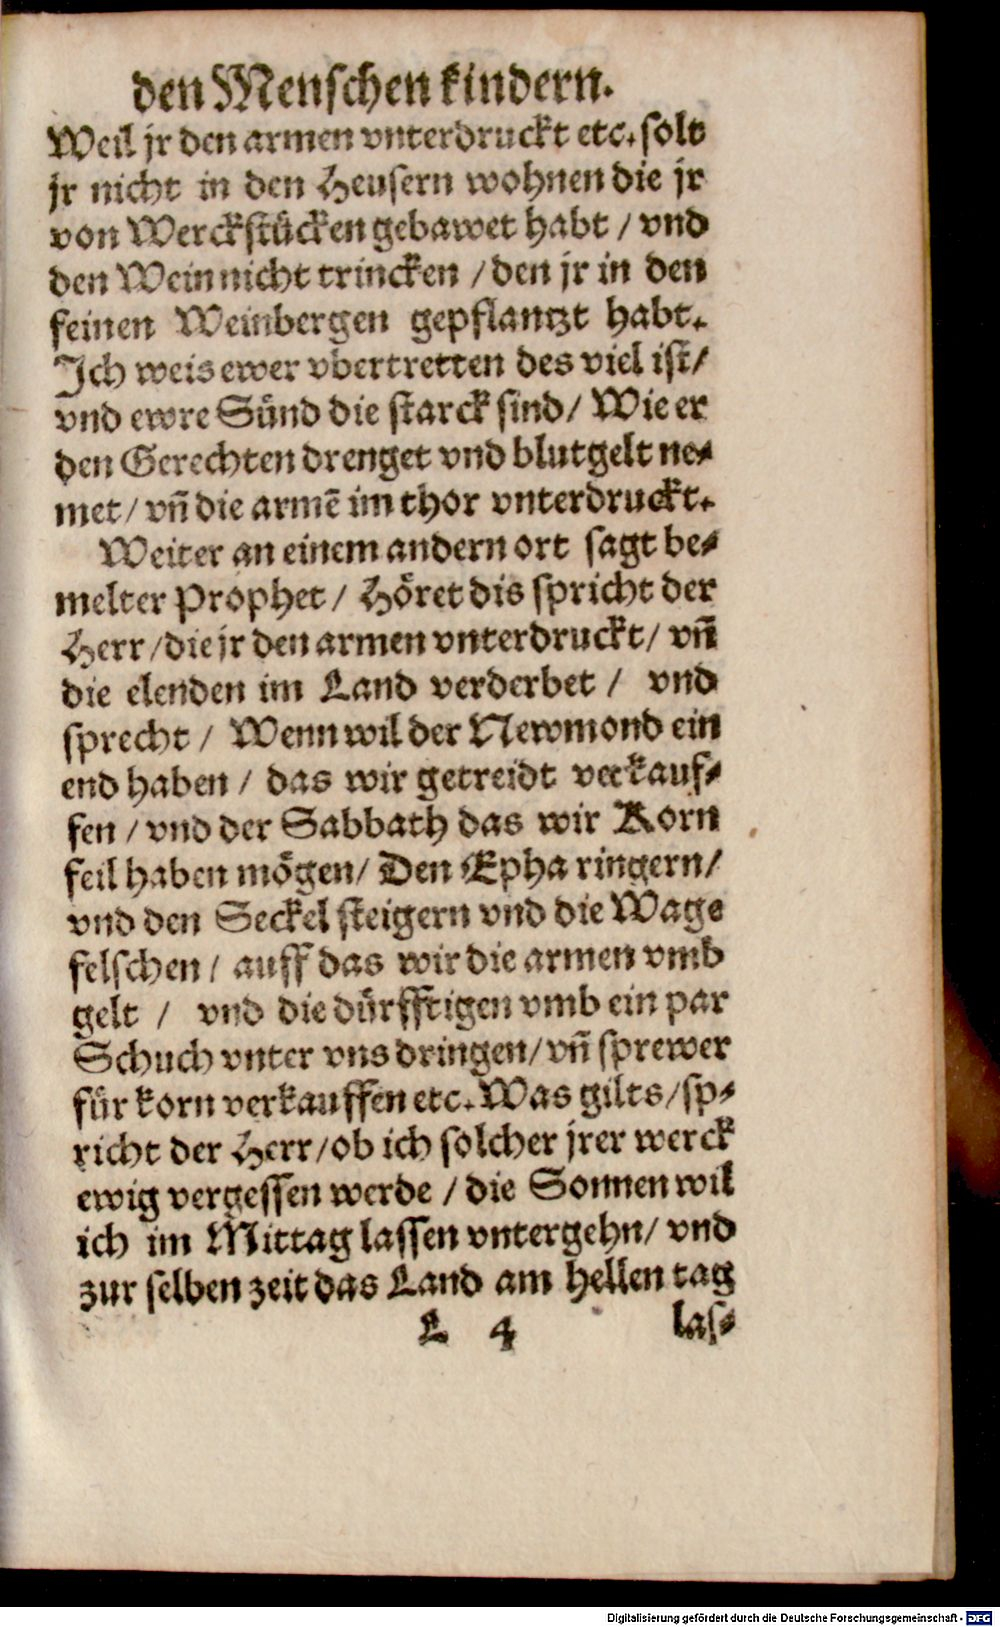 den Menschen kindern.
Weil jr den armen vnterdruckt etc. solt
jr nicht in den Heusern wohnen die jr
von Werckstücken gebawet habt / vnd
den Wein nicht trincken / den jr in den
feinen Weinbergen gepflantzt habt.
Ich weis ewer vbertretten des viel ist /
vnd ewre Sünd die starck sind / Wie er
den Gerechten drenget vnd blutgelt ne⸗
met / vñ die armē im thor vnterdruckt.
Weiter an einem andern ort sagt be⸗
melter Prophet / Höret dis spricht der
Herr / die jr den armen vnterdruckt / vñ
die elenden im Land verderbet / vnd
sprecht / Wenn wil der Newmond ein
end haben / das wir getreidt verkauf⸗
fen / vnd der Sabbath das wir Korn
feil haben mögen / Den Epha ringern /
vnd den Seckel steigern vnd die Wage
felschen / auff das wir die armen vmb
gelt / vnd die dürfftigen vmb ein par
Schuch vnter vns dringen / vñ sprewer
für korn verkauffen etc. Was gilts / sp⸗
richt der Herr / ob ich solcher jrer werck
ewig vergessen werde / die Sonnen wil
ich im Mittag lassen vntergehn / vnd
zur selben zeit das Land am hellen tag
L 4 las⸗
Digitalisierung gefördert durch die Deutsche Forschungsgemeinschaft - DFG